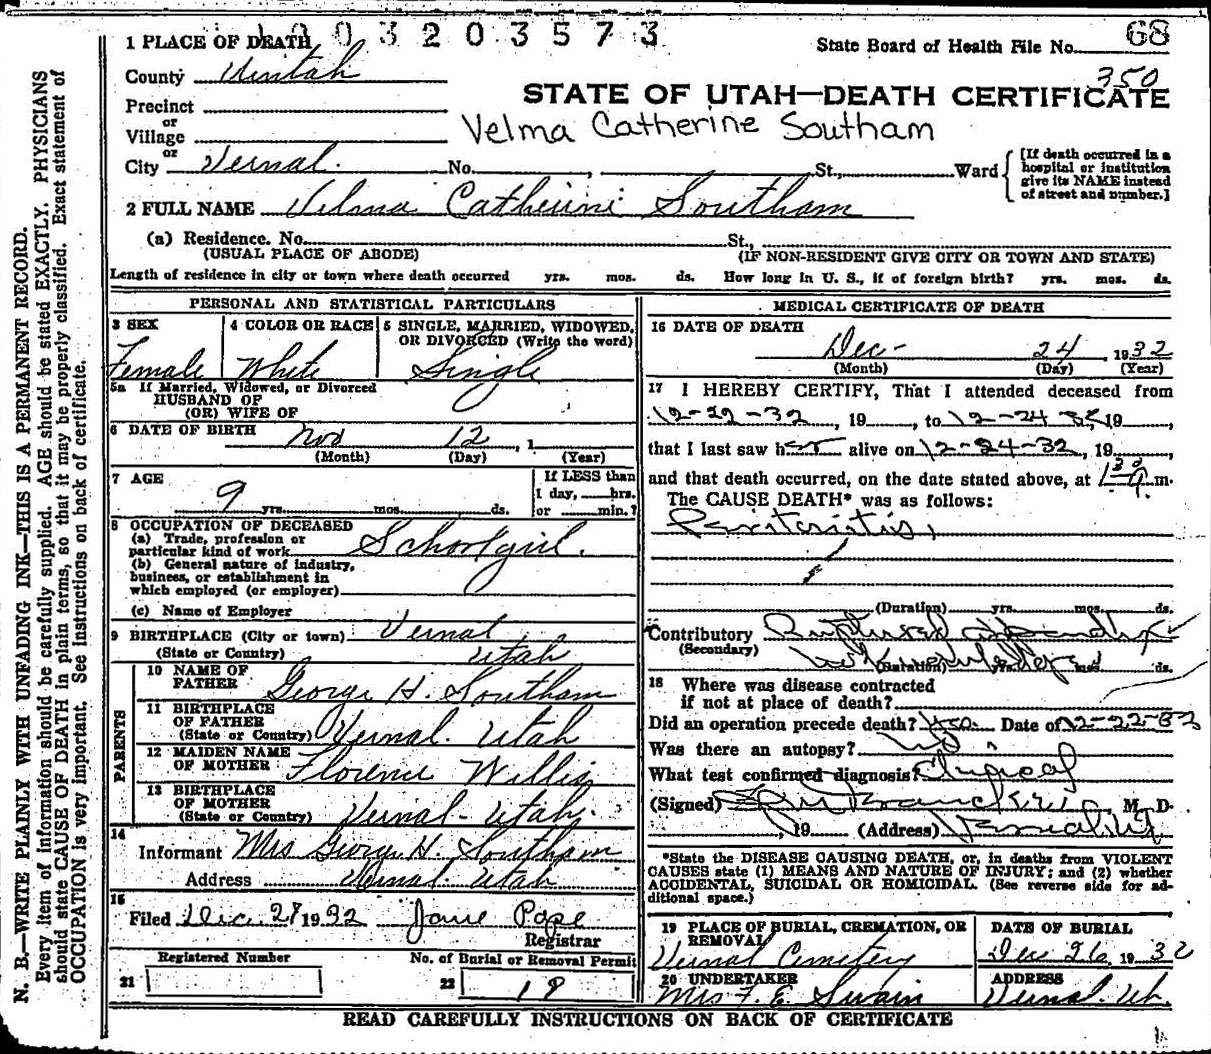 0 0 3 2 0 3 5 7 3
State Board of Health File No. 68
350
STATE OF UTAH—DEATH CERTIFICATE
Velma Catherine Southam
1 PLACE OF DEATH
County Uintah
Precinct
or
Village
or
City Vernal. No. , St., Ward
[If death occurred in a
hospital or institution
give its NAME instead
of street and number.]
2 FULL NAME Velma Catherine Southam
(a) Residence. No. St.,
(USUAL PLACE OF ABODE) (IF NON-RESIDENT GIVE CITY OR TOWN AND STATE)
Length of residence in city or town where death occurred yrs. mos. ds. How long in U. S., if of foreign birth? yrs. mos. ds.
PERSONAL AND STATISTICAL PARTICULARS
3 SEX
Female
4 COLOR OR RACE
White
5 SINGLE, MARRIED, WIDOWED,
OR DIVORCED (Write the word)
Single
5a If Married, Widowed, or Divorced
HUSBAND OF
(OR) WIFE OF
6 DATE OF BIRTH Nov 12, 1
(Month) (Day) (Year)
7 AGE
9 yrs. mos. ds.
If LESS than
1 day, hrs.
or min.?
8 OCCUPATION OF DECEASED
(a) Trade, profession or
particular kind of work School girl.
(b) General nature of industry,
business, or establishment in
which employed (or employer)
(c) Name of Employer
9 BIRTHPLACE (City or town) Vernal
(State or Country) Utah
PARENTS
10 NAME OF
FATHER George H. Southam
11 BIRTHPLACE
OF FATHER
(State or Country) Vernal. Utah
12 MAIDEN NAME
OF MOTHER Florence Willis
13 BIRTHPLACE
OF MOTHER
(State or Country) Vernal - Utah.
14
Informant Mrs George H. Southam
Address Vernal. Utah
15
Filed Dec. 28 1932 Jane Pope
Registrar
Registered Number No. of Burial or Removal Permit
21 22 18
MEDICAL CERTIFICATE OF DEATH
16 DATE OF DEATH
Dec- 24, 1932
(Month) (Day) (Year)
17 I HEREBY CERTIFY, That I attended deceased from
12-22-32, 19, to 12-24 32, 19,
that I last saw her alive on 12-24-32, 19,
and that death occurred, on the date stated above, at m.
The CAUSE DEATH* was as follows:
Peritonitis,
(Duration) yrs. mos. ds.
Contributory Ruptured appendix
(Secondary)
(Duration) yrs. mos. ds.
18 Where was disease contracted
if not at place of death?
Did an operation precede death? Yes. Date of 12-22-32
Was there an autopsy? No
What test confirmed diagnosis? Clinical
(Signed) M. D.
, 19 (Address) Vernal Ut
*State the DISEASE CAUSING DEATH, or, in deaths from VIOLENT
CAUSES state (1) MEANS AND NATURE OF INJURY; and (2) whether
ACCIDENTAL, SUICIDAL OR HOMICIDAL. (See reverse side for ad-
ditional space.)
19 PLACE OF BURIAL, CREMATION, OR
REMOVAL
Vernal Cemetery
DATE OF BURIAL
Dec 26, 1932
20 UNDERTAKER
Mrs F. E. Swain
ADDRESS
Vernal. Ut.
READ CAREFULLY INSTRUCTIONS ON BACK OF CERTIFICATE
N. B.—WRITE PLAINLY WITH UNFADING INK—THIS IS A PERMANENT RECORD.
Every item of information should be carefully supplied. AGE should be stated EXACTLY. PHYSICIANS
should state CAUSE OF DEATH in plain terms, so that it may be properly classified. Exact statement of
OCCUPATION is very important. See instructions on back of certificate.